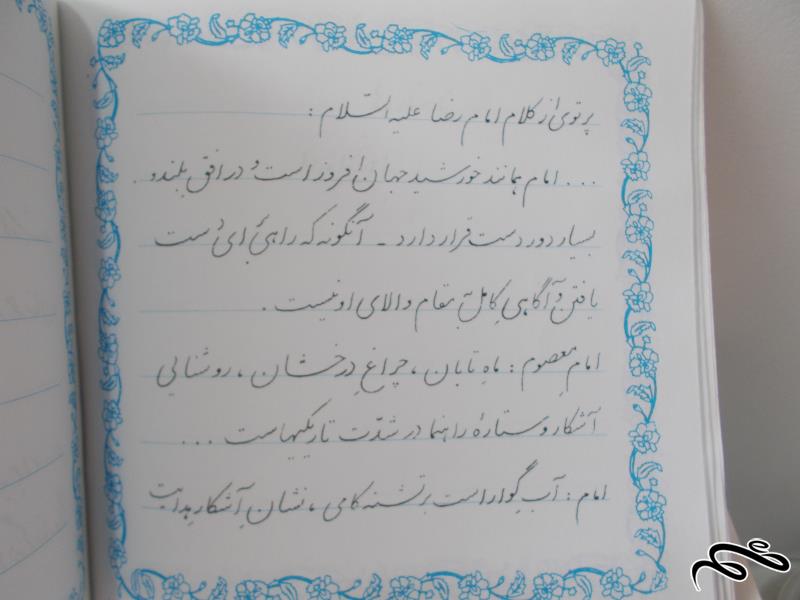 پرتوی از کلام امام رضا علیه السّلام :
... امام همانند خورشید جهان افروز است و در افق بلند و
بسیار دور دست قرار دارد - آنگونه که راهی برای دست
یافتن و آگاهیِ کامل به مقام والای او نیست .
امامِ معصوم : ماهِ تابان ، چراغِ درخشان ، روشنایی
آشکار و ستارهٔ راهنما در شدّت تاریکیهاست ...
امام : آب گواراست بر تشنه کامی ، نشانِ آشکارِ هدایت